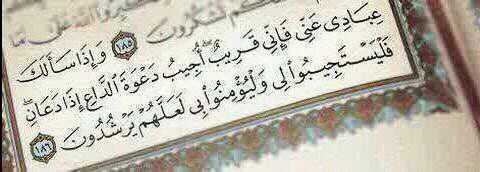 كم تشكرون ١٨٥ وإذا سألك
عبادى عنى فإنى قريب أجيب دعوة الداع إذا دعان
فليستجيبوا لى وليؤمنوا بى لعلهم يرشدون ١٨٦